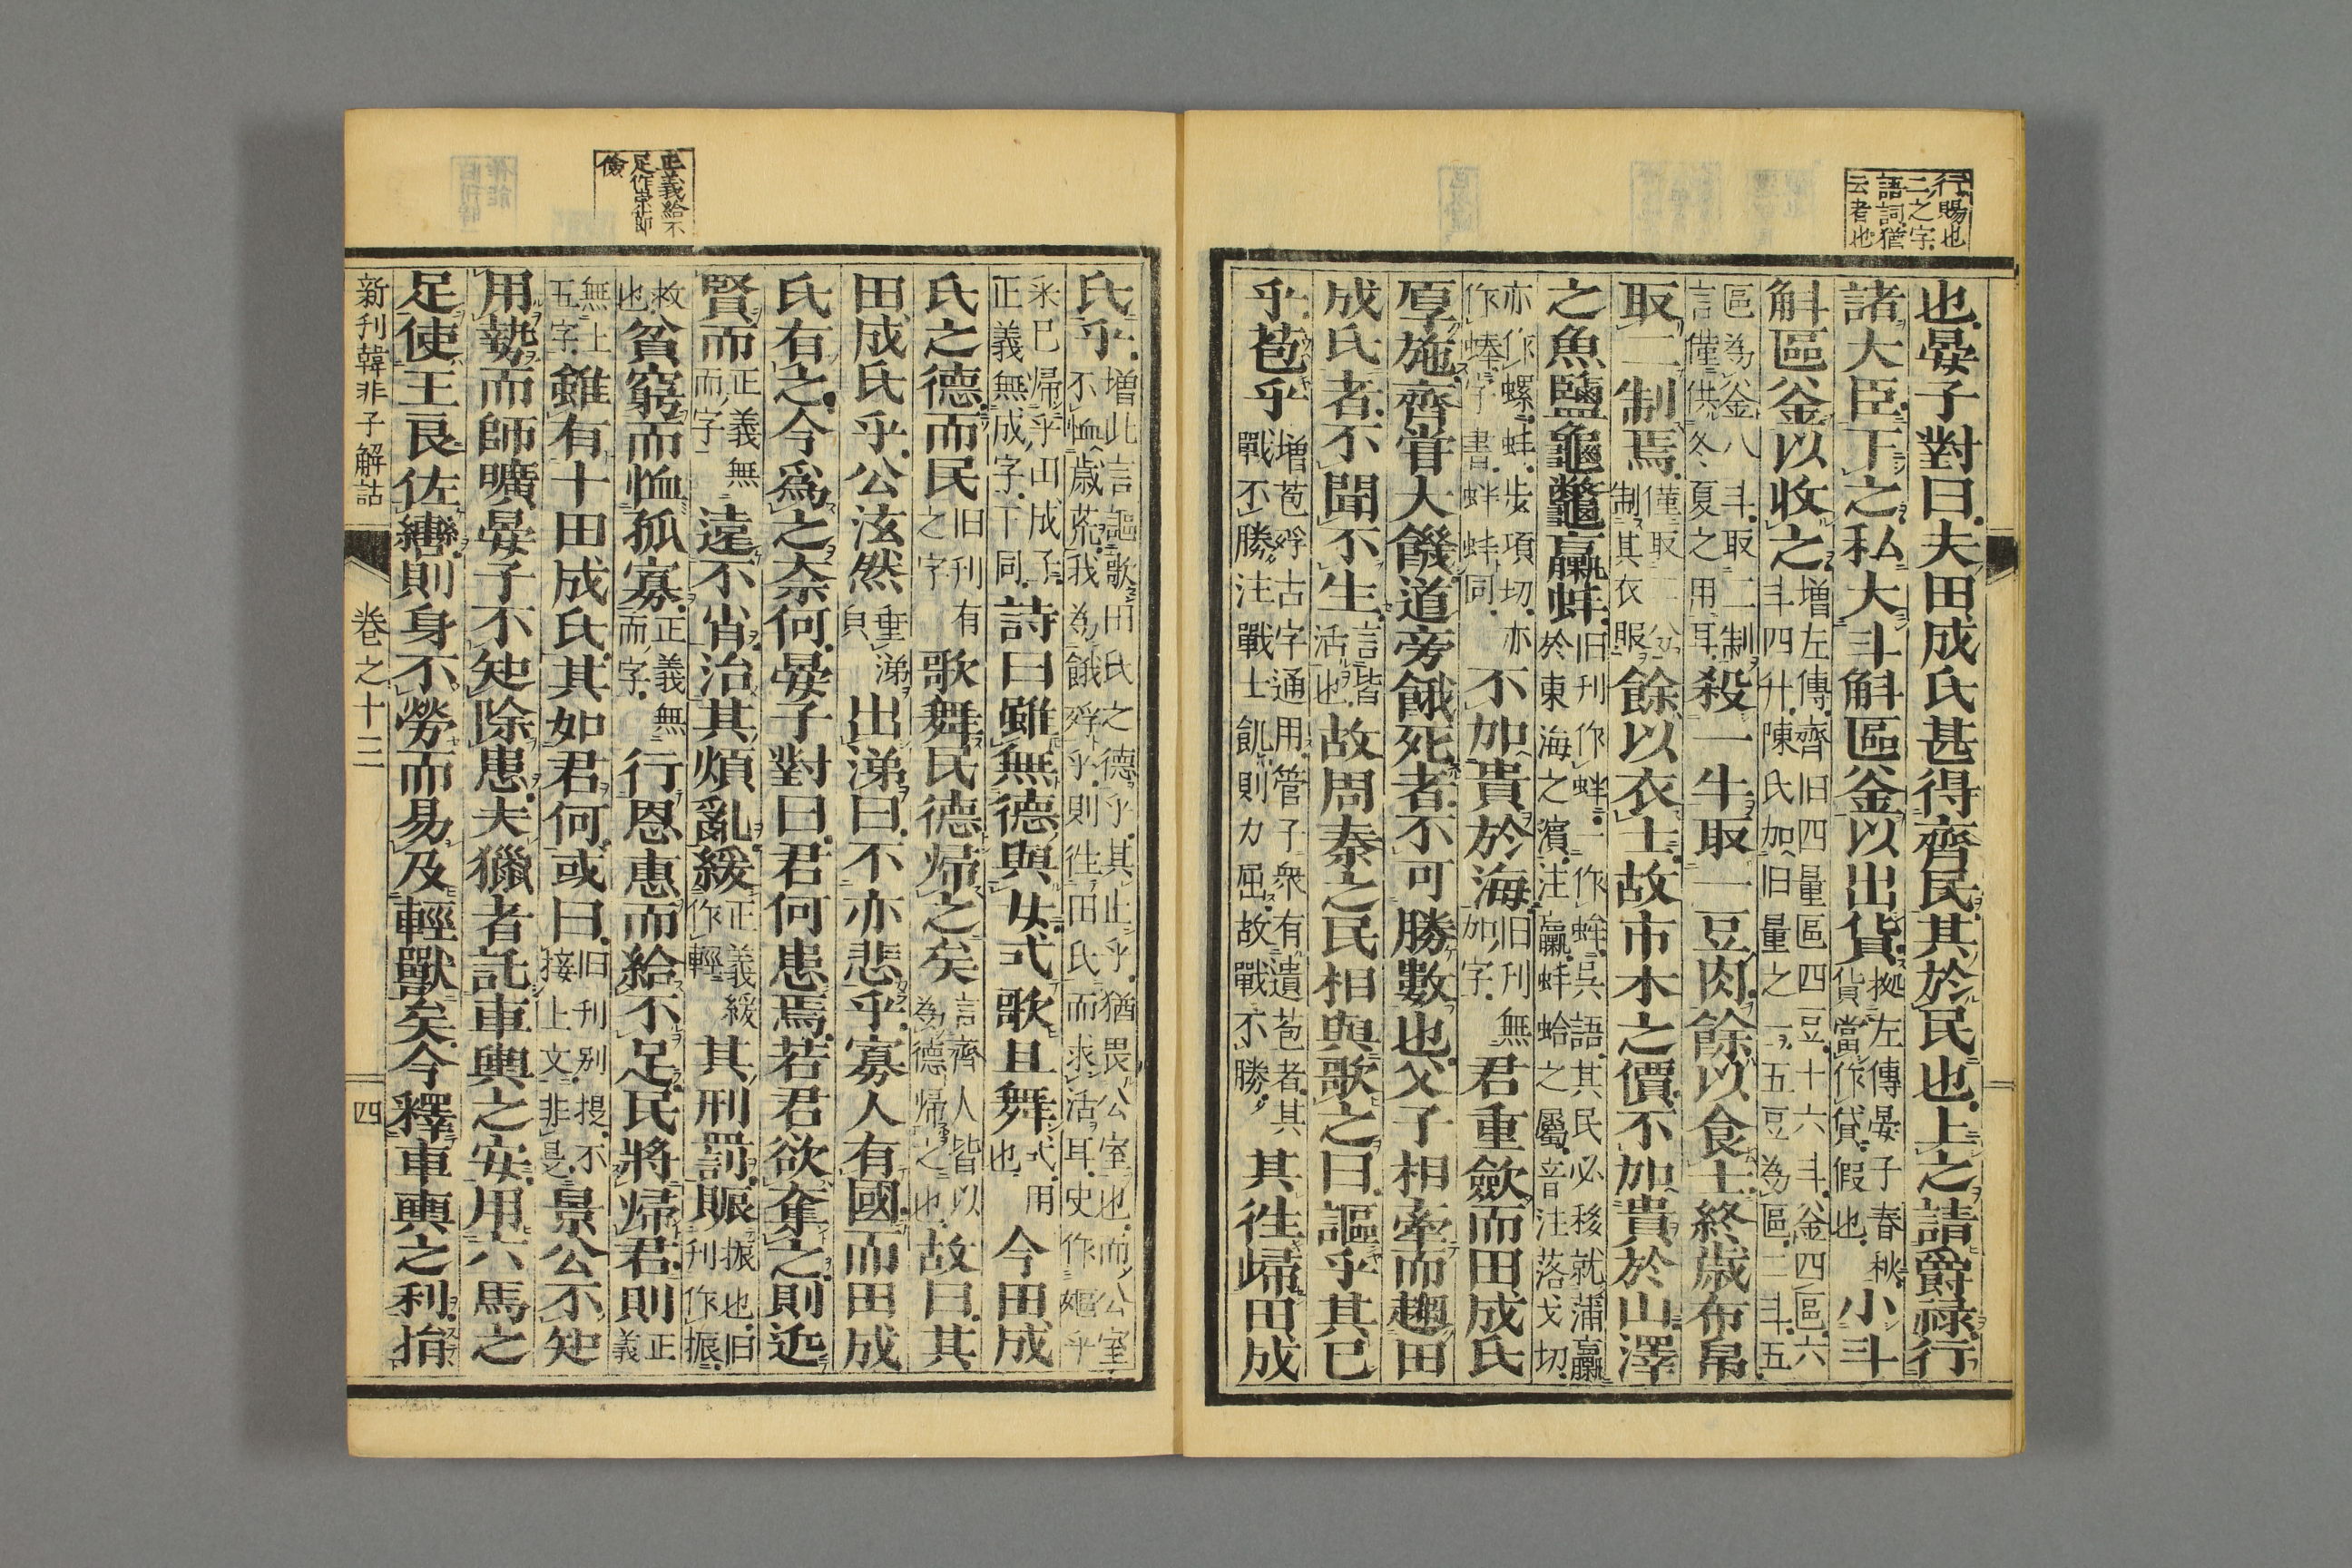 行賜也
二之字
語詞猶
云者也
也晏子對曰夫田成氏甚得齊民其於民也上之請爵祿行
諸大臣下之私大斗斛區釜以出貨拠左傳晏子春秋貨當作貸假也小斗
斛區釜以收之増左傳齊旧四量區四豆十六斗釜四區六斗四升陳氏加旧量之一五豆為區二斗五
區為釜八斗取二制言僅供冬夏之用耳殺一牛取一豆肉餘以食士終歳布帛
取二制焉僅取二分制其衣服餘以衣士故市木之價不加貴於山澤
之魚鹽龜鼈蠃蚌旧刋作蚌一作蛑呉語其民必移就蒲蠃於東海之濱注蠃蚌蛤之屬音注落戈切
亦作螺蚌步項切亦作蜯字書蚌蚌同不加貴於海旧刋無加字君重歛而田成氏
厚施齊甞大饑道旁餓死者不可勝數也父子相牽而趨田
成氏者不聞不生言皆活也故周秦之民相與歌之曰謳乎其已
乎苞乎増苞殍古字通用管子衆有遺苞者其戰不勝注戰士飢則力屈故戰不勝其徃歸田成
正義給不
足作崇節
儉
氏乎増此言謳歌田氏之德乎其止乎猶畏公室也而公室不恤歳荒我為餓殍乎則徃田氏而求活耳史作嫗乎
采已帰乎田成子正義無成字下同詩曰雖無德與女式歌且舞式用也今田成
氏之德而民旧刋有之字歌舞民德歸之矣言齊人皆以為德帰之也故曰其
田成氏乎公泫然垂涕貝出涕曰不亦悲乎寡人有國而田成
氏有之今爲之奈何晏子對曰君何患焉若君欲奪之則近
賢而正義無而字遠不肖治其煩亂緩正義緩作輕其刑罰賑振也旧刋作振
救也貧窮而恤孤寡正義無而字行恩惠而給不足民將歸君則正義
無上五字雖有十田成氏其如君何或曰旧刋別提不接上文非是景公不知
用勢而師曠晏子不知除患夫獵者託車輿之安用六馬之
足使王良佐轡則身不勞而易及輕獸矣今釋車輿之利捐
新刋韓非子解詁　卷之十三　四